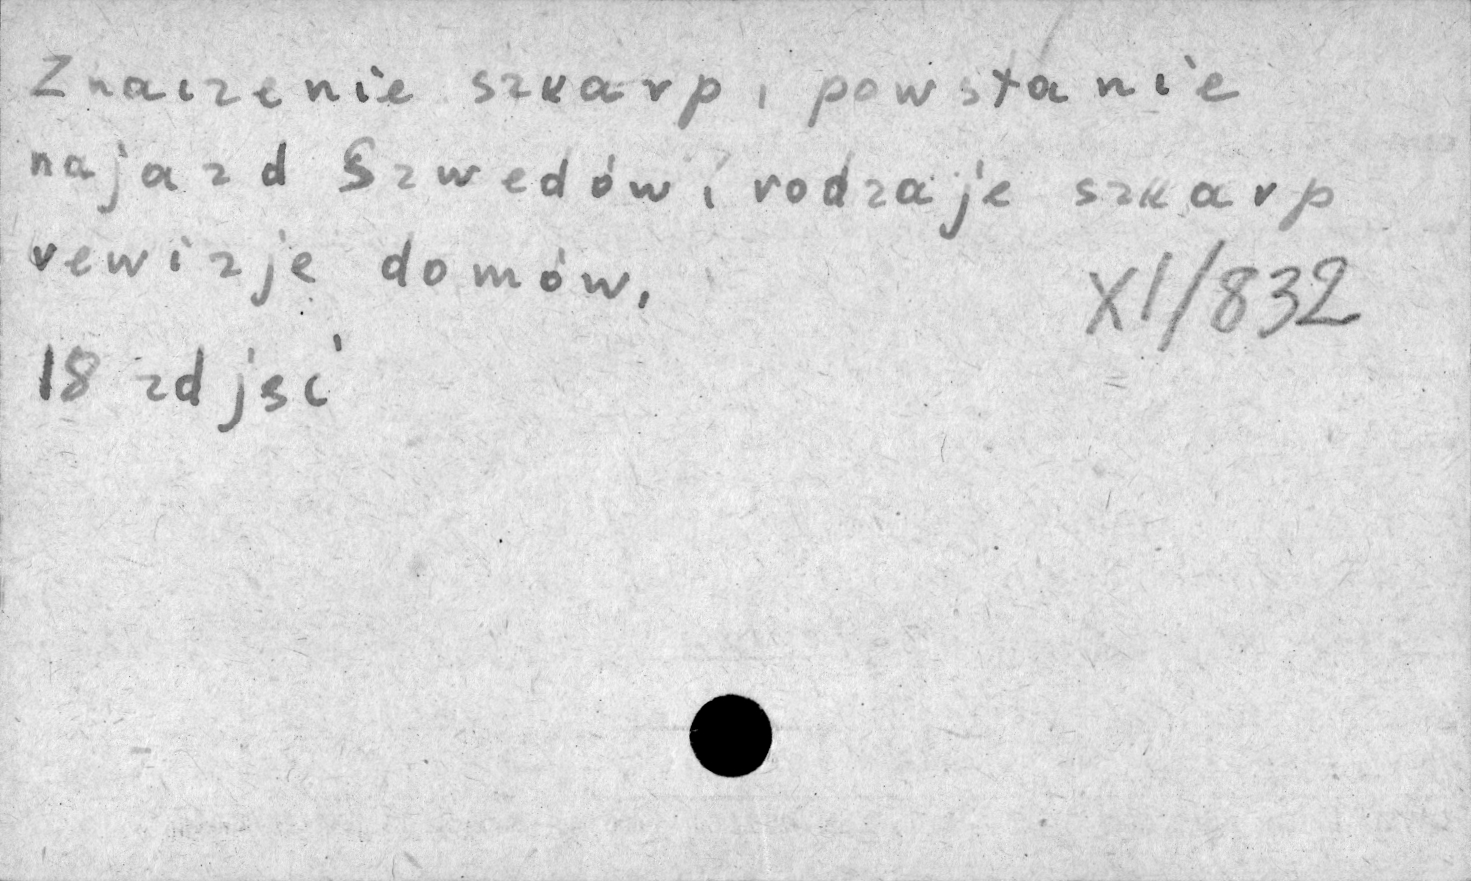 Znaczenie szkarp, powstanie
najazd Szwedów, rodzaje szkarp
rewizje domów,
XI/832
18 zdjęć